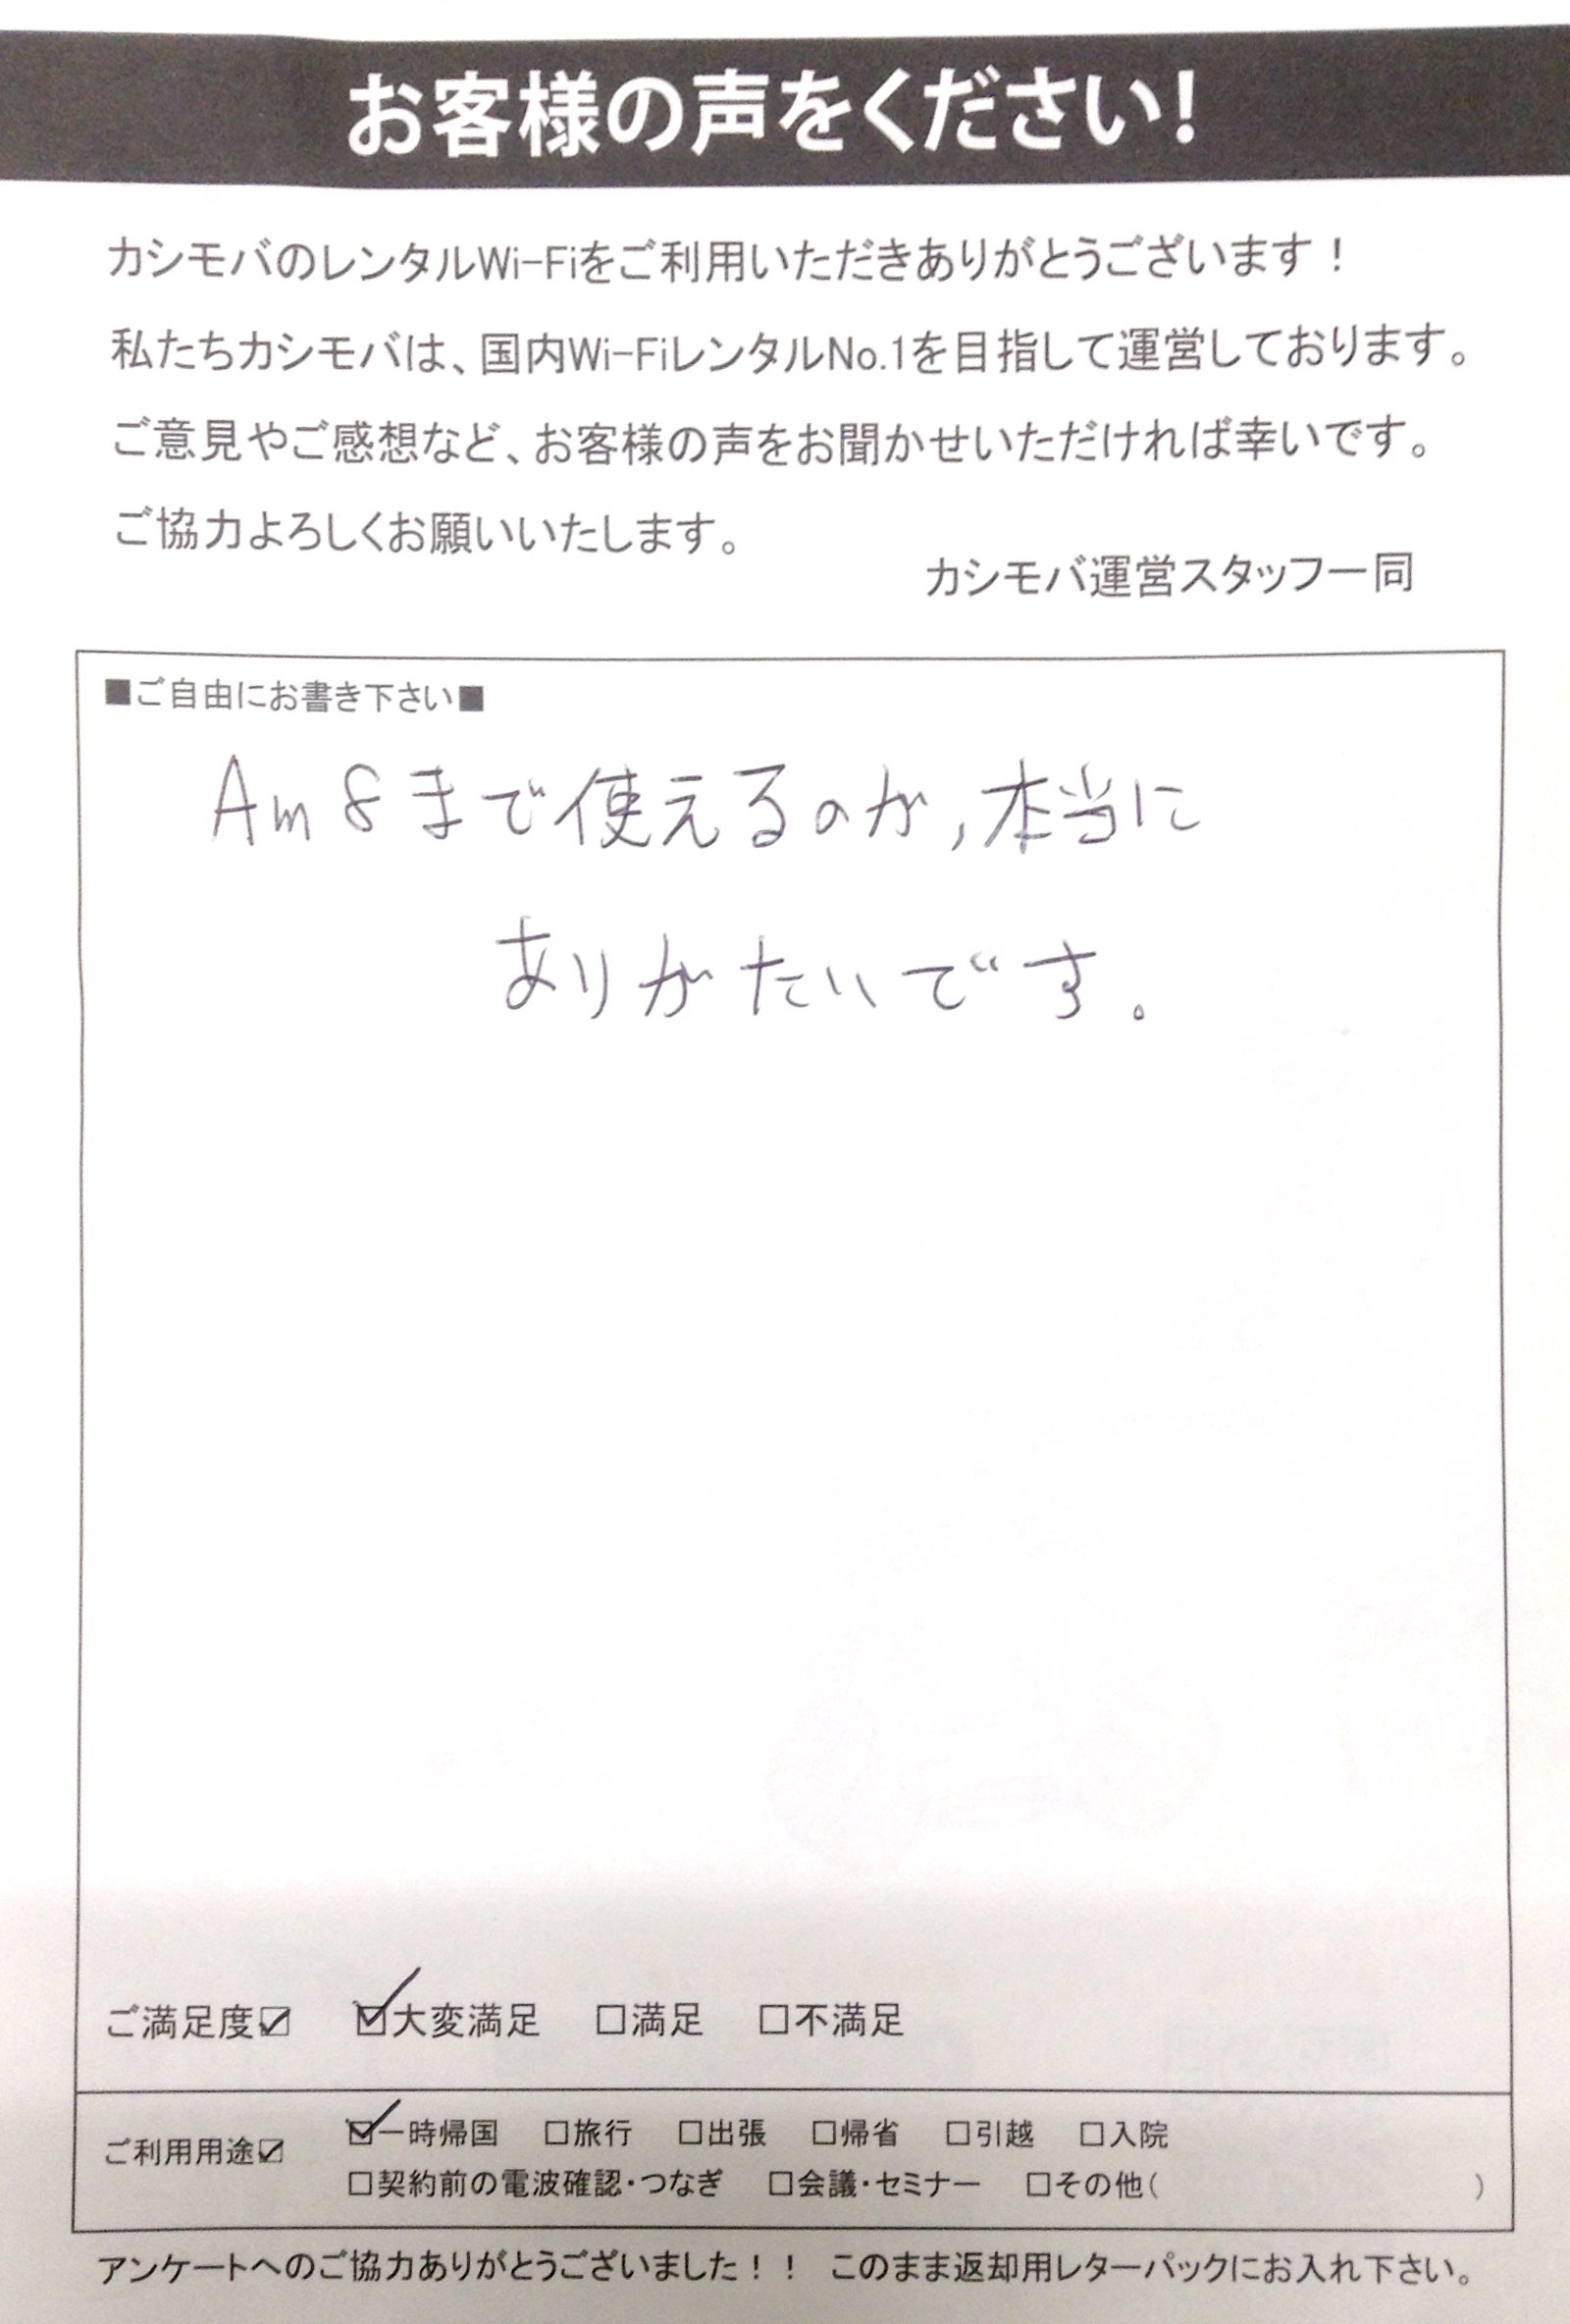 お客様の声をください!
カシモバのレンタルWi-Fiをご利用いただきありがとうございます！
私たちカシモバは、国内Wi-FiレンタルNo.1を目指して運営しております。
ご意見やご感想など、お客様の声をお聞かせいただければ幸いです。
ご協力よろしくお願いいたします。
カシモバ運営スタッフ一同
■ご自由にお書き下さい■
Am 8まで使えるのが,本当に
ありがたいです。
ご満足度☑ ☑大変満足 □満足 □不満足
ご利用用途☑ ☑一時帰国 □旅行 □出張 □帰省 □引越 □入院
□契約前の電波確認・つなぎ □会議・セミナー □その他( )
アンケートへのご協力ありがとうございました！！ このまま返却用レターパックにお入れ下さい。